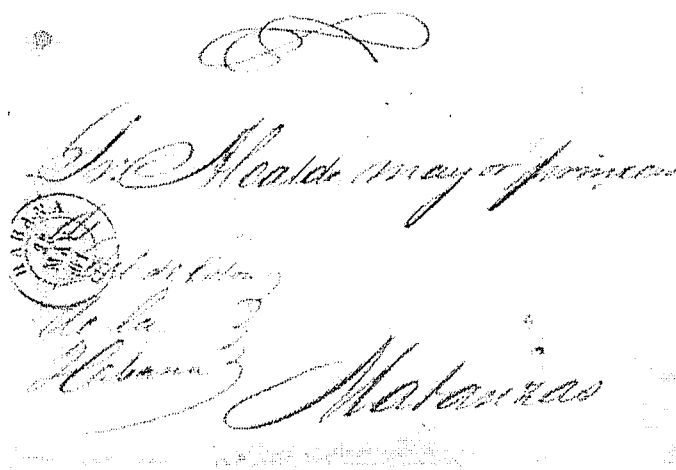 Sor. Alcalde mayor primero
HABANA
De la
Habana
Matanzas